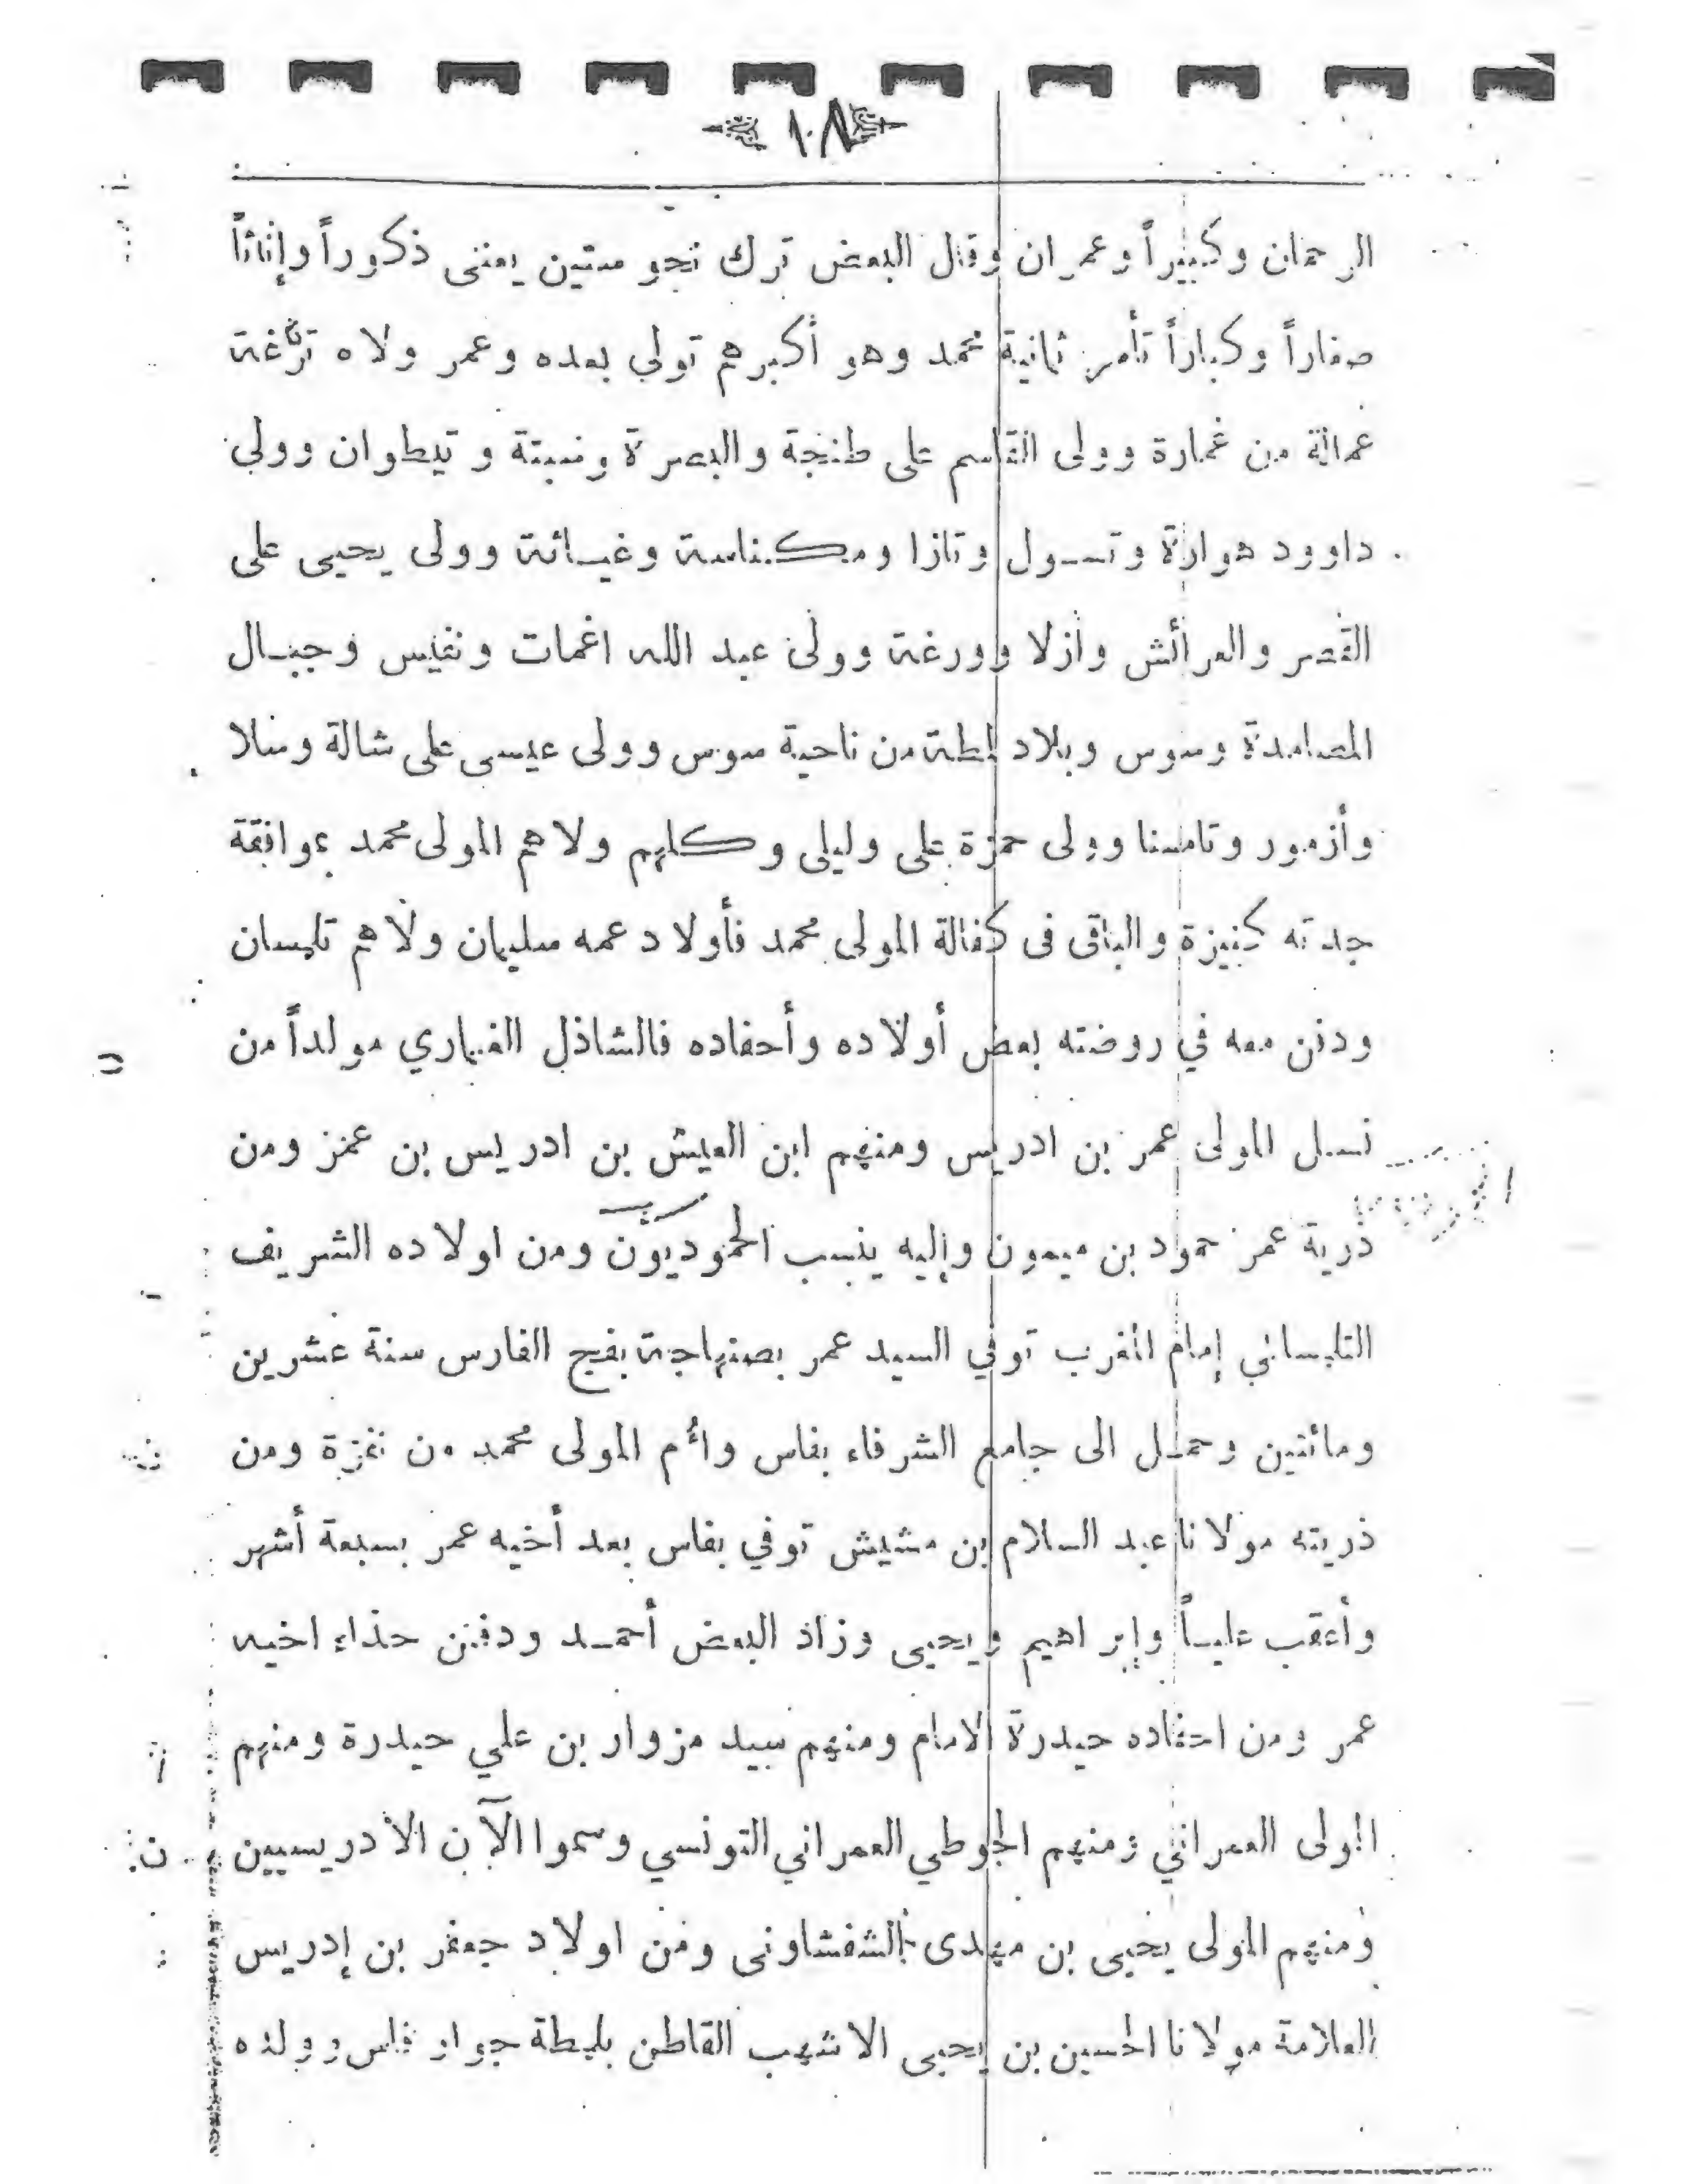 ١٠٨
الرحمان وكبيراً وعمران وقال البعض ترك نحو ستين يعنى ذكوراً وإناثاً
صغاراً وكباراً تأمر ثمانية محمد وهو أكبرهم تولى بعده وعمر ولاه ترغة
عمالة من غمارة وولى القاسم على طنجة والبصرة وسبتة وتيطوان وولى
داوود هوارة وتسول وتازا ومكناسة وغياثة وولى يحيى على
القصر والعرائش وأزلا وورغة وولى عبد الله اغمات ونفيس وجبال
المصامدة وسوس وبلاد لمطة من ناحية سوس وولى عيسى على شالة وسلا
وأزمور وتامسنا وولى حمزة على وليلى وكلهم ولاهم المولى محمد بموافقة
جدته كنيزة والباقى فى كفالة المولى محمد فأولاد عمه سليمان ولاهم تلمسان
ودفن معه في روضته بعض أولاده وأحفاده فالشاذل الغماري مولداً من
نسل المولى عمر بن ادريس ومنهم ابن العيش بن ادريس بن عمر ومن
ذرية عمر حمود بن ميمون وإليه ينسب الحموديون ومن اولاده الشريف
التلمساني إمام المغرب توفي السيد عمر بصنهاجة بفج الفارس سنة عشرين
ومائتين وحمل الى جامع الشرفاء بفاس وأم المولى محمد من نفزة ومن
ذريته مولانا عبد السلام بن مشيش توفي بفاس بعد أخيه عمر بسبعة أشهر
وأعقب علياً وإبراهيم ويحيى وزاد البعض أحمد ودفن حذاء اخيه
عمر ومن احفاده حيدرة الامام ومنهم سيد مزوار بن علي حيدرة ومنهم
المولى العمراني ومنهم الجوطي العمراني التونسي وسموا الآن الادريسيين
ومنهم المولى يحيى بن مهدى الشفشاونى ومن اولاد جعفر بن إدريس
العلامة مولانا الحسين بن يحيى الاشهب القاطن بلمطة جوار فاس وولده